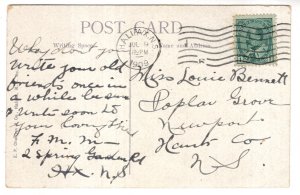 POST CARD
Writing Space
Address
HALIFAX N.S.
JUL 9
1909
Why don't you
write your old
friends once in
a while be sure
& write soon to
your loving friend
F. M. M —
2 Spring Garden Rd
Hx. N.S
Miss Louie Bennett
Poplar Grove
Newport
Hants Co.
N.S.